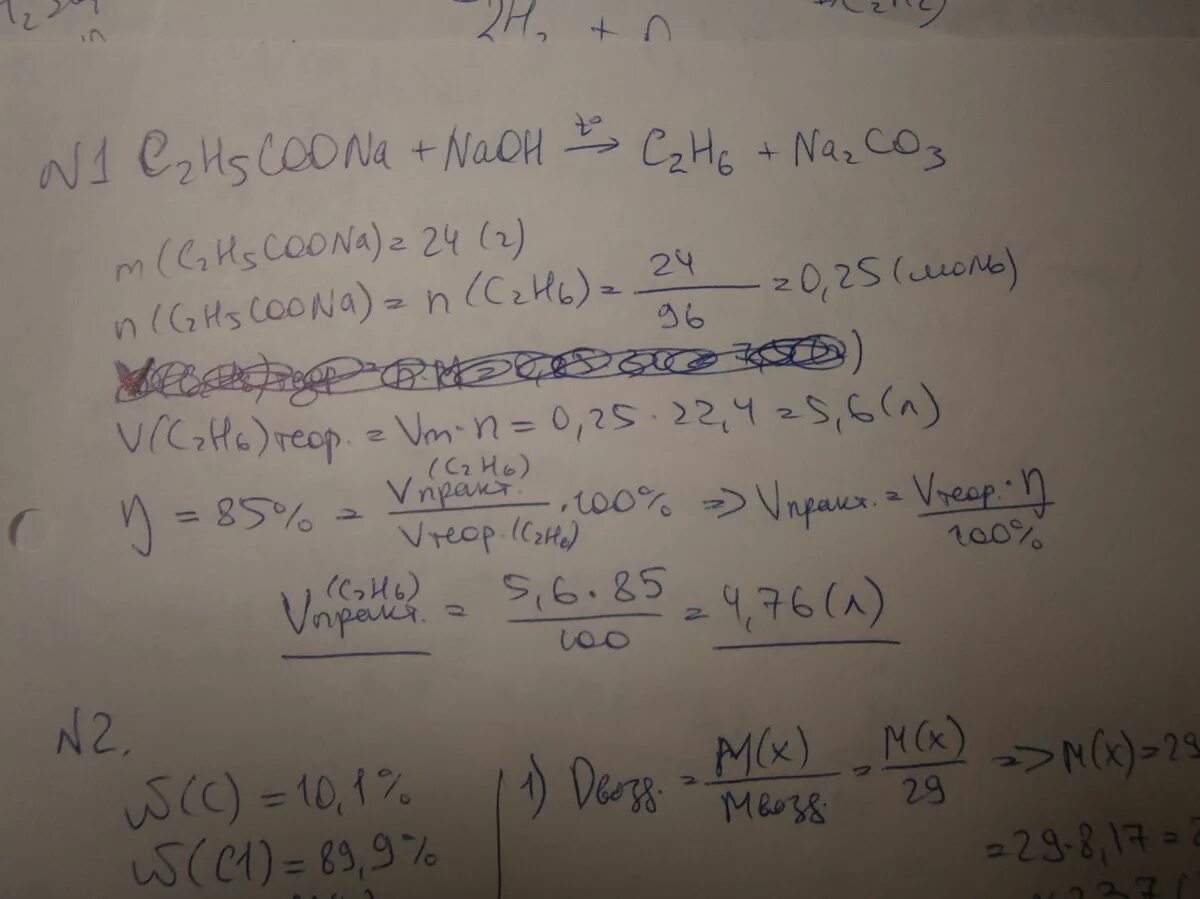 2H₂ + n
N1 C₂H₅COONa + NaOH t°→ C₂H₆ + Na₂CO₃
m(C₂H₅COONa) = 24 (г)
n(C₂H₅COONa) = n(C₂H₆) = 24/96 = 0,25 (моль)
V(C₂H₆)теор. = Vm·n = 0,25 · 22,4 = 5,6 (л)
η = 85% = Vпракт.(C₂H₆)/Vтеор.(C₂H₆) · 100% => Vпракт. = Vтеор.·η/100%
Vпракт.(C₂H₆) = 5,6 · 85/100 = 4,76 (л)
N2.
ω(C) = 10,1%
ω(Cl) = 89,9%
1) Dвозд. = M(x)/Mвозд. = M(x)/29 => M(x) = 29
= 29·8,17 =
237